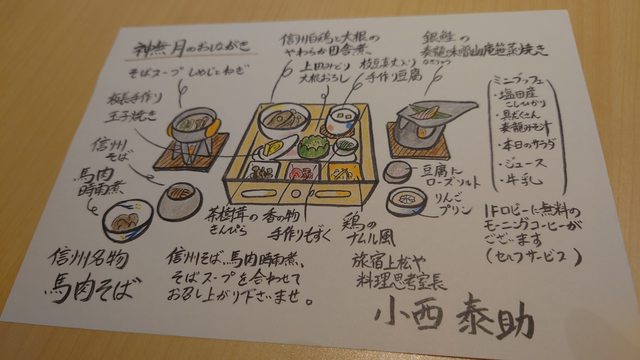 神無月のおしながき
そばスープ しめじとねぎ
板長手作り
玉子焼き
信州
そば
馬肉
時雨煮
信州白鶏と大根の
やわらか田舎煮
上田みどり
大根おろし
枝豆真丈入り
手作り豆腐
銀鮭の
麦龍味噌山庵笹蒸焼き
ミニブッフェ
・塩田産
こしひかり
・具だくさん
麦龍みそ汁
・本日のサラダ
・ジュース
・牛乳
豆腐に
ローズソルト
りんご
プリン
茶樹茸の
きんぴら
香の物
手作りもずく
鶏の
ナムル風
1Fロビーに無料の
モーニングコーヒーが
ございます
(セルフサービス)
信州名物
馬肉そば
信州そば、馬肉時雨煮、
そばスープを合わせて
お召し上がり下さいませ。
旅宿上松や
料理思考室長
小西 泰助